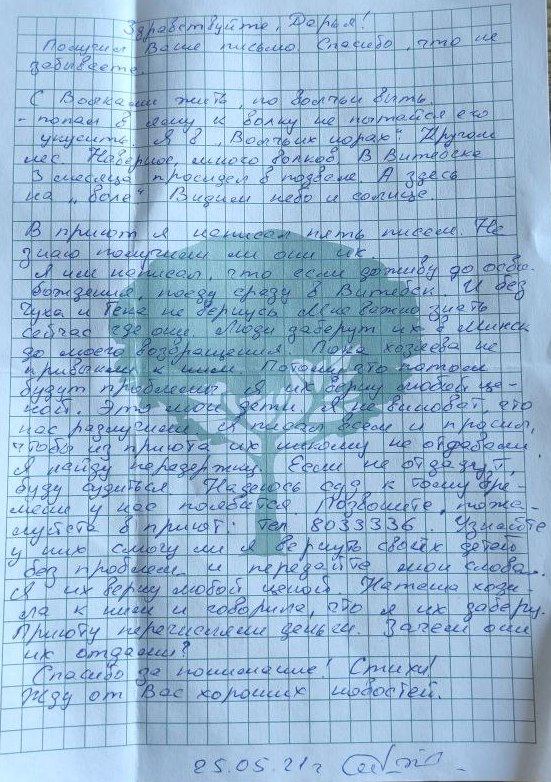 Здравствуйте, Дарья!
Получил Ваше письмо Спасибо, что не
забываете.
С Волками жить, по волчьи выть.
- попал в яму к волку не пытайся его
укусить. Я в „Волчьих норах“ Кругом
лес. Наверное, много волков В Витебске
3 месяца просидел в подвале А здесь
на „воле“ Видим небо и солнце.
В приют я написал пять писем. Не
знаю получили ли они их
Я им написал, что если доживу до осво-
бождения, поеду сразу в Витебск. И без
Чука и Гека не вернусь Мне важно знать
сейчас где они. Люди заберут их в Минск
до моего возвращения. Пока хозяева не
привыкли к ним. Потому что потом
будут проблемы Я их верну любой це-
ной. Это мои дети. Я не виноват, что
нас разлучили Я писал всем и просил,
чтобы из приюта их никому не отдавали
Я найду передержку. Если не отдадут,
буду судиться. Надеюсь суд к тому вре-
мени у нас появится. Позвоните, пожа-
луйста в приют: тел 8033336. Узнайте
у них смогу ли я вернуть своих детей
без проблем и передайте мои слова
Я их верну любой ценой. Наташа ходи-
ла к ним и говорила, что я их заберу.
Приюту перечисляли деньги. Зачем они
их отдали?
Спасибо за понимание! Стихи!
Жду от Вас хороших новостей.
25.05.21г